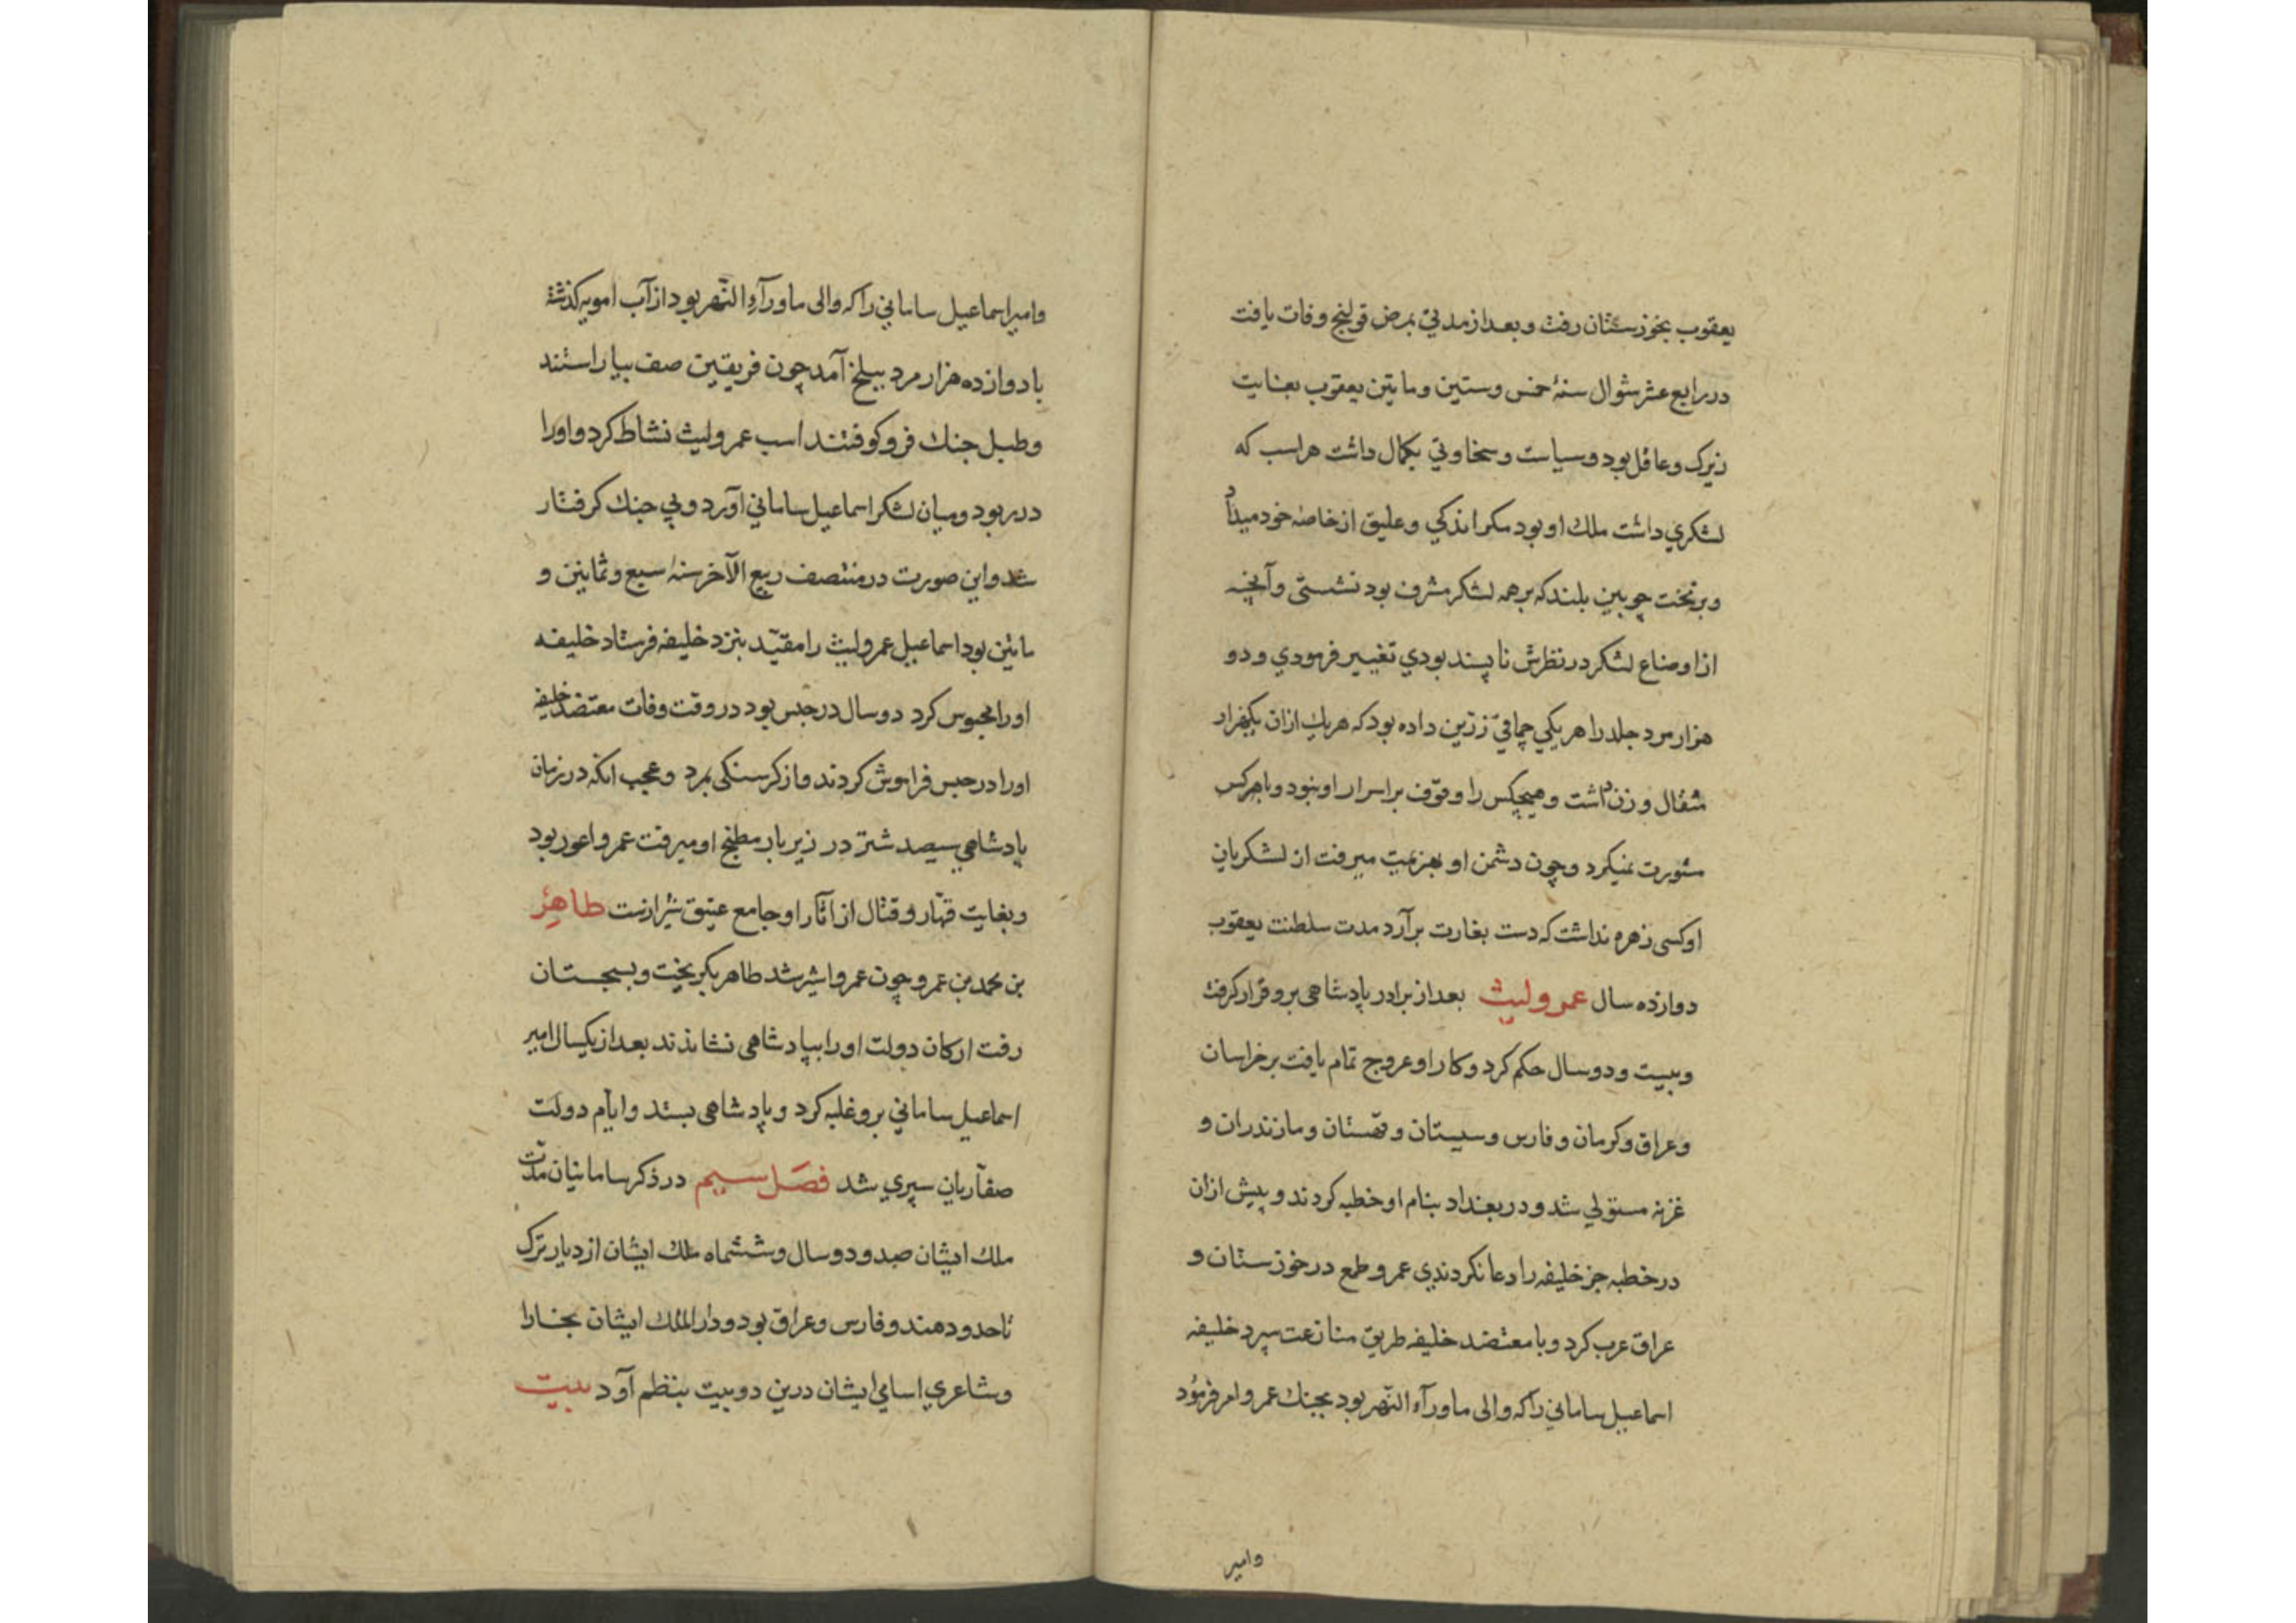 یعقوب بخوزستان رفت و بعد از مدتی بمرض قولنج وفات یافت
در رابع عشر شوال سنۀ خمس و ستین و مایتین یعقوب بغایت
زیرک و عاقل بود و سیاست و سخاوتی بکمال داشت هر اسب که
لشکری داشت ملک او بود مکر اندکی و علیق از خاصه خود میداد
و بر تخت چوبین بلند که بر همه لشکر مشرف بود نشستی و آنچه
از اوضاع لشکر در نظرش ناپسند بودی تغییر فرمودی و دو
هزار مرد جلد را هر یکی چماقی زرّین داده بود که هر یک ازان یکهزار
مثقال وزن داشت و هیچکس را وقوف بر اسرار او نبود و با هرکس
مشورت نمیکرد و چون دشمن او بهزیمت میرفت از لشکریان
او کسی زهره نداشت که دست بغارت برآرد مدت سلطنت یعقوب
دوازده سال عمرو لیث بعد از برادر پادشاهی برو قرار کرفت
و بیست و دو سال حکم کرد و کار او عروج تمام یافت بر خراسان
و عراق و کرمان و فارس و سیستان و قهستان و مازندران و
غزنه مستولی شد و در بغداد بنام او خطبه کردند و پیش ازان
در خطبه جز خلیفه را دعا نکردندی عمرو طمع در خوزستان و
عراق عرب کرد و با معتضد خلیفه طریق منازعت سپرد خلیفه
اسماعیل سامانی را که والی ماورآء النّهر بود بجنک عمرو امر فرمود
وامیر
و امیر اسماعیل سامانی را که والی ماورآء النّهر بود از آب امویه کذشته
با دوازده هزار مرد ببلخ آمد چون فریقین صف بیاراستند
و طبل جنک فرو کوفتند اسب عمرو لیث نشاط کرد و اورا
در ربود و میان لشکر اسماعیل سامانی آورد و بی جنک کرفتار
شد و این صورت در منتصف ربیع الآخر سنه سبع و ثمانین و
مائتین بود اسماعیل عمرو لیث را مقیّد بنزد خلیفه فرستاد خلیفه
اورا محبوس کرد دو سال در حبس بود در وقت وفات معتضد خلیفه
اورا در حبس فراموش کردند و از کرسنکی بمرد و عجب انکه در زمان
پادشاهی سیصد شتر در زیر بار مطبخ او میرفت عمرو اعور بود
و بغایت قهّار و قتال از آثار او جامع عتیق شیرازست طاهِرُ
بن محمد بن عمرو چون عمرو اسیر شد طاهر بکریخت و بسجستان
رفت ارکان دولت اورا بپادشاهی نشاندند بعد از یکسال امیر
اسماعیل سامانی برو غلبه کرد و پادشاهی بستد و ایّام دولت
صفّاریان سپری شد فصَل سیم در ذکر سامانیان مدّت
ملک ایشان صد و دو سال و ششماه ملک ایشان از دیار ترک
تا حدود هند و فارس و عراق بود و دار الملک ایشان بخارا
و شاعری اسامی ایشان درین دو بیت بنظم آورد بیت